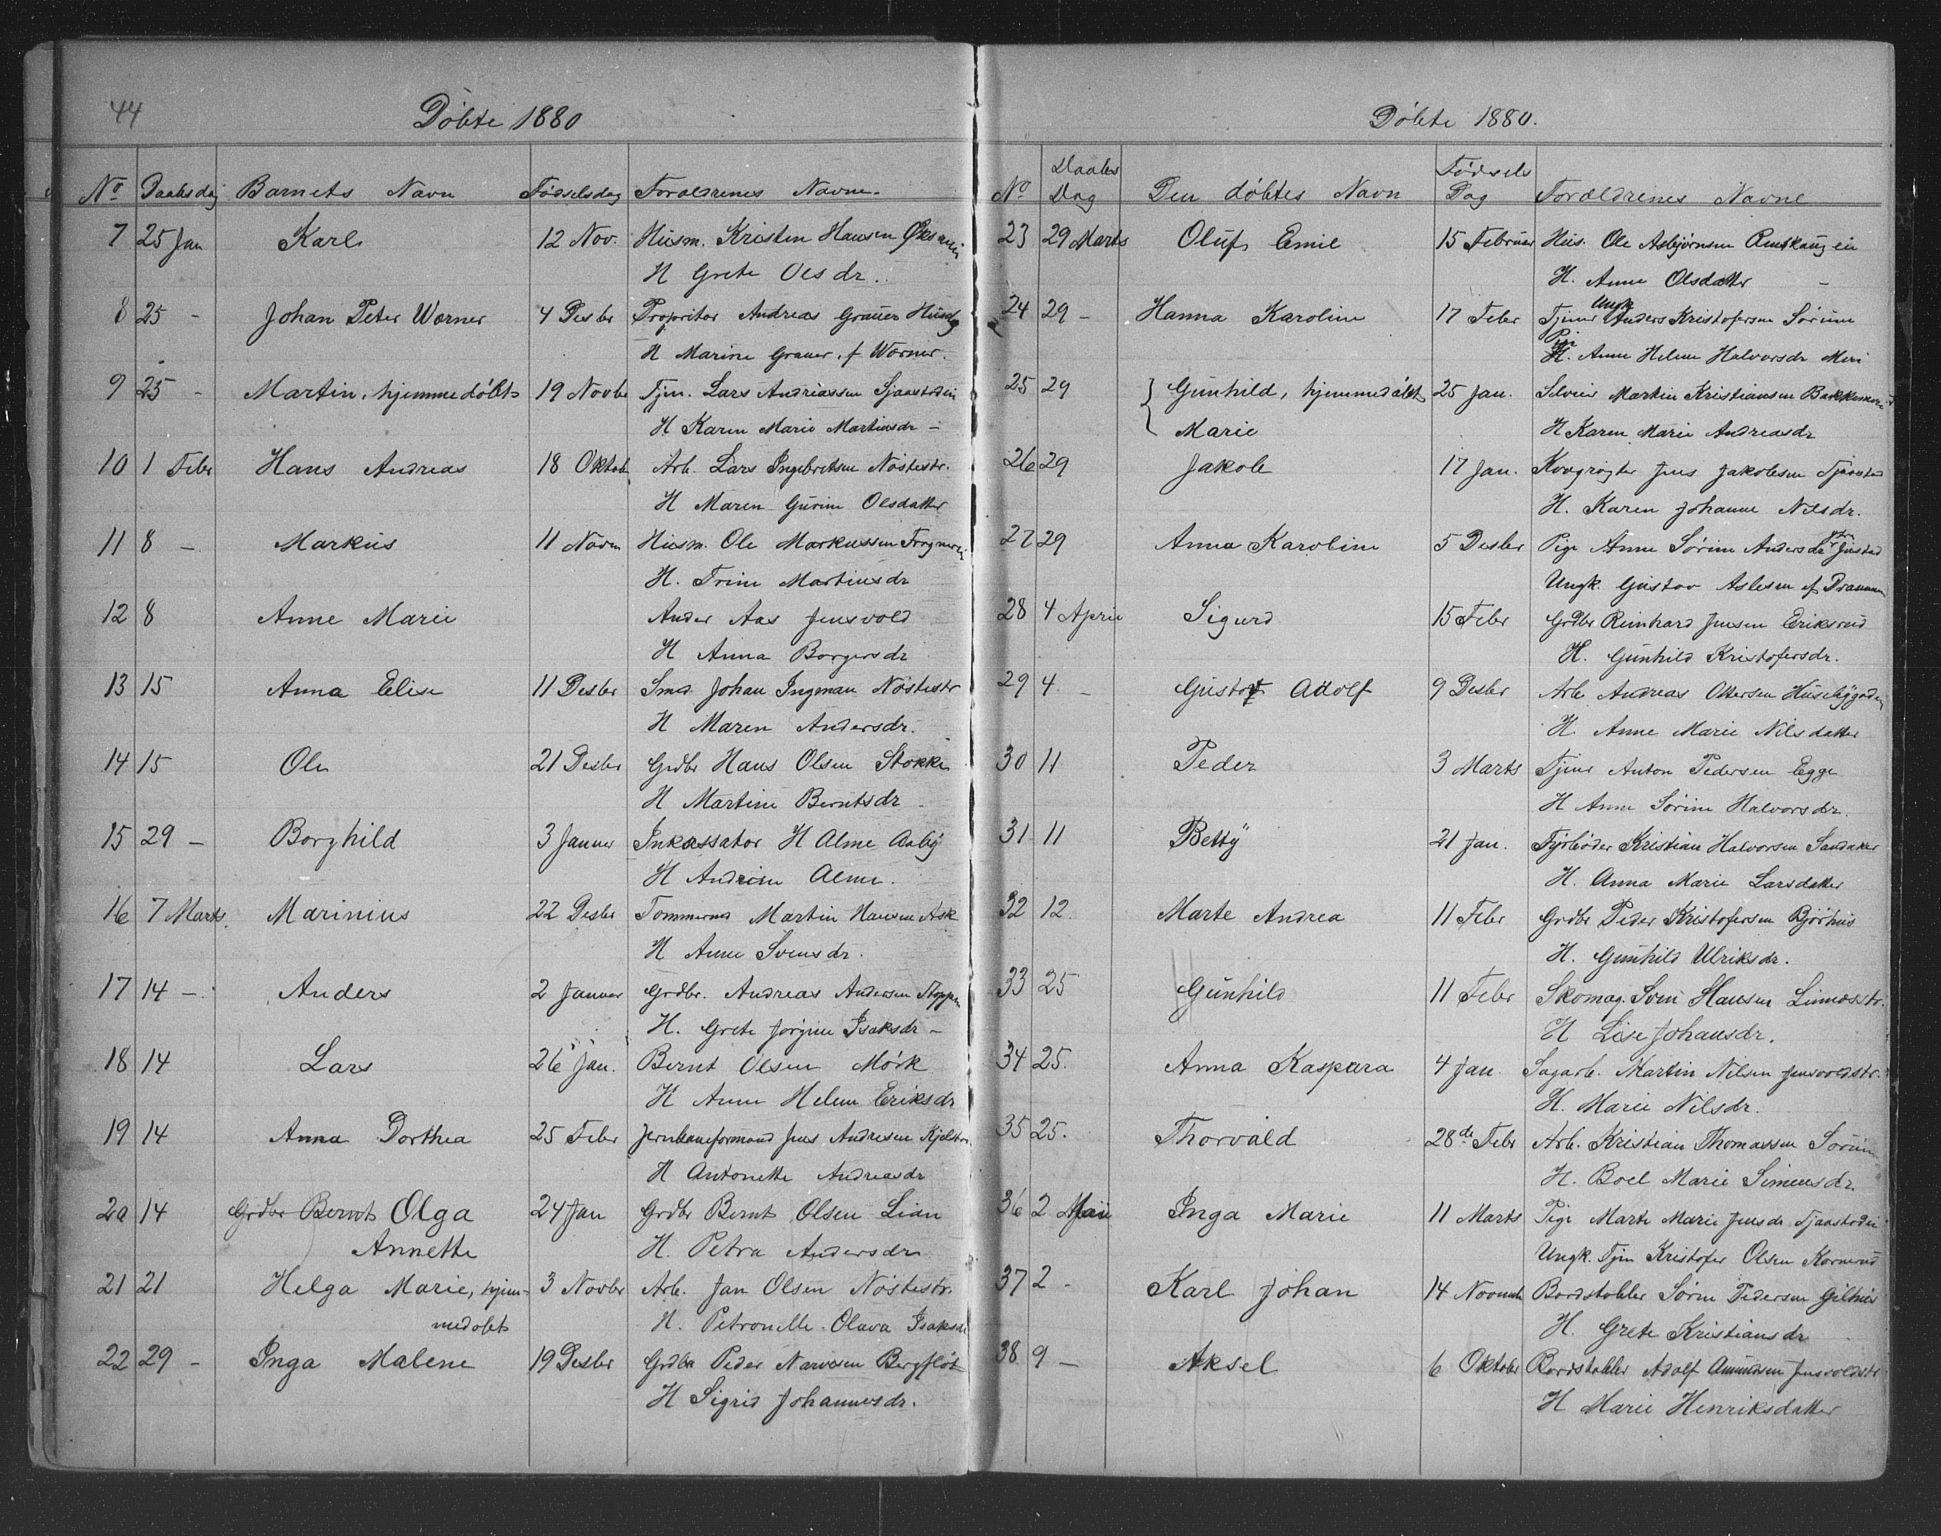 44
Döbte 1880
No Daabsdag Barnets Navn Fødselsdag Forældrenes Navne.
7 25 Jan Karl 12 Nov. Husm. Kristen Hansen
H Grete Olsdr.
8 25 - Johan Peter Wærner 4 Desbr Propritær Andreas Grauer
H Marine Grauer, f Wærner.
9 25 - Martin, hjemmedöbt 19 Novbr Tjm. Lars Andriassen
H Karen Marie Martinsdr -
10 1 Febr Hans Andreas 18 Oktob Arb. Lars Ingebretsen Nöstestr.
H Maren Gurine Olsdatter
11 8 - Markus 11 Novm Husm. Ole Markussen
H. Trine Martinsdr
12 8 Anne Marie Ander Aas Jensvold
H Anna Borgersdr
13 15 Anna Elise 11 Desbr Smed Johan Ingman Nöstestr
H Maren Andersdr.
14 15 Ole 21 Desbr Grdbr Hans Olsen Stokke
H Martine Berntsdr
15 29 - Borghild 3 Januar Inkassator H Alme Aaby
H Andrine Alme.
16 7 Marts. Marinius 22 Desbr Tömmermd Martin Hansen Ask
H Anne Svensdr.
17 14 - Anders 2 Januar Grdbr. Andreas Andersen Stoppen
H. Grete Jörgine Isaksdr -
18 14 Lars 26 Jan. Bernt Olsen Mörk
H Anne Helene Eriksdr
19 14 Anna Dorthea 25 Febr Jernbaneformand Jens Andresen
H Antonette Andreasdr
20 14 Grdbr Bernt Olga 24 Jan Grdbr Bernt Olsen Lian
Annette H. Petra Andersdr
21 21 Helga Marie, hjem- 3 Novbr Arb. Jan Olsen Nöstestr.
medöbt H. Petronelle Olava Isaksd
22 29 - Inga Malene 19 Desbr Grdbr Peder Narvesen Bergflöt
H Sigrid Johannesdr.
Döbte 1880.
No Daabs Dag Den döbtes Navn Fødsels Dag Forældrenes Navne
23 29 Marts Oluf Emil 15 Februar Hus. Ole Asbjörnsen
H. Anne Olsdatter -
24 29 - Hanna Karoline 17 Febr Tjener Ungk Anders Kristofersen Sörum
Pige H. Anne Helene Halvorsdr
25 29 Gunhild, hjemmedöbt 25 Jan. Martin Kristiansen
Marie H Karen Marie Andreasdr
26 29 Jakob 17 Jan. Kvægrögter Jens Jakobsen
H. Karen Johanne Nilsdr.
27 29 Anna Karoline 5 Desbr Pige Anne Sörine Andersdr
Ungk. Gustav Aslesen af Drammen
28 4 April Sigurd 15 Febr Grdbr Reinhard Jensen Eriksrud
H. Gunhild Kristofersdr.
29 4 - Gustav Adolf 9 Desbr Arb Andreas Ottersen
H. Anne Marie Nilsdatter
30 11 Peder 3 Marts Tjener Anton Pedersen Egge
H Anne Sörine Halvorsdr.
31 11 Betty 21 Jan. Fyrböder Kristian Halvorsen Sandaker
H. Anna Marie Larsdatter
32 12. Marte Andrea 11 Febr Grdbr Peder Kristofersen Björhus
H. Gunhild Ulriksdr.
33 25 Gunhild 11 Febr Skomag. Sven Hansen Linnæsstr.
H Lise Johansdr.
34 25. Anna Kaspara 4 Jan. Sagarb. Martin Nilsen Jensvoldstr.
H. Marie Nilsdr.
35 25. Thorvald 28de Febr Arb. Kristian Thomassen Sörum
H. Boel Marie Simensdr
36 2 Mai Inga Marie 11 Marts Pige Marte Marie Jensdr
Ungk. Tjen Kristofer Olsen
37 2 - Karl Johan 14 Novemb Bordstabler Sören Pedersen Gilhus
H. Grete Kristiansdr
38 9 - Aksel 6 Oktober Bordstabler Adolf Amundsen Jensvoldstr
H Marie Henriksdatter